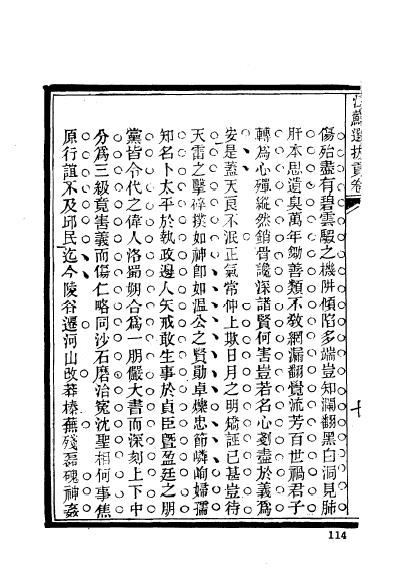 江蘇選拔貢卷
傷殆盡有碧雲騢之機阱傾陷多端豈知瀾翻黑白洞見肺
肝本思遺臭萬年鋤善類不教網漏翻覺流芳百世禍君子
轉為心殫縱然銷骨讒深譖賢何害豈若名心剗盡於義為
安是蓋天良不泯正氣常伸上欺日月之明矯誣已甚豈待
天雷之擊碎撲如神卽如溫公之賢勛卓爍忠節嶙峋婦孺
知名卜太平於執政邊人矢戒敢生事於貞臣曁盈廷之朋
黨皆令代之偉人洛蜀朔合為一朋儼大書而深刻上下中
分為三級竟害義而傷仁略同沙石磨治冤沈聖相何事焦
原行誼不及邱民迄今陵谷遷河山改莽榛蕪殘磊磈神姦
114